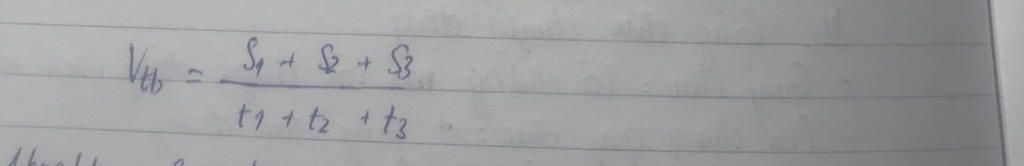 V_tb = (S_1 + S_2 + S_3) / (t_1 + t_2 + t_3)